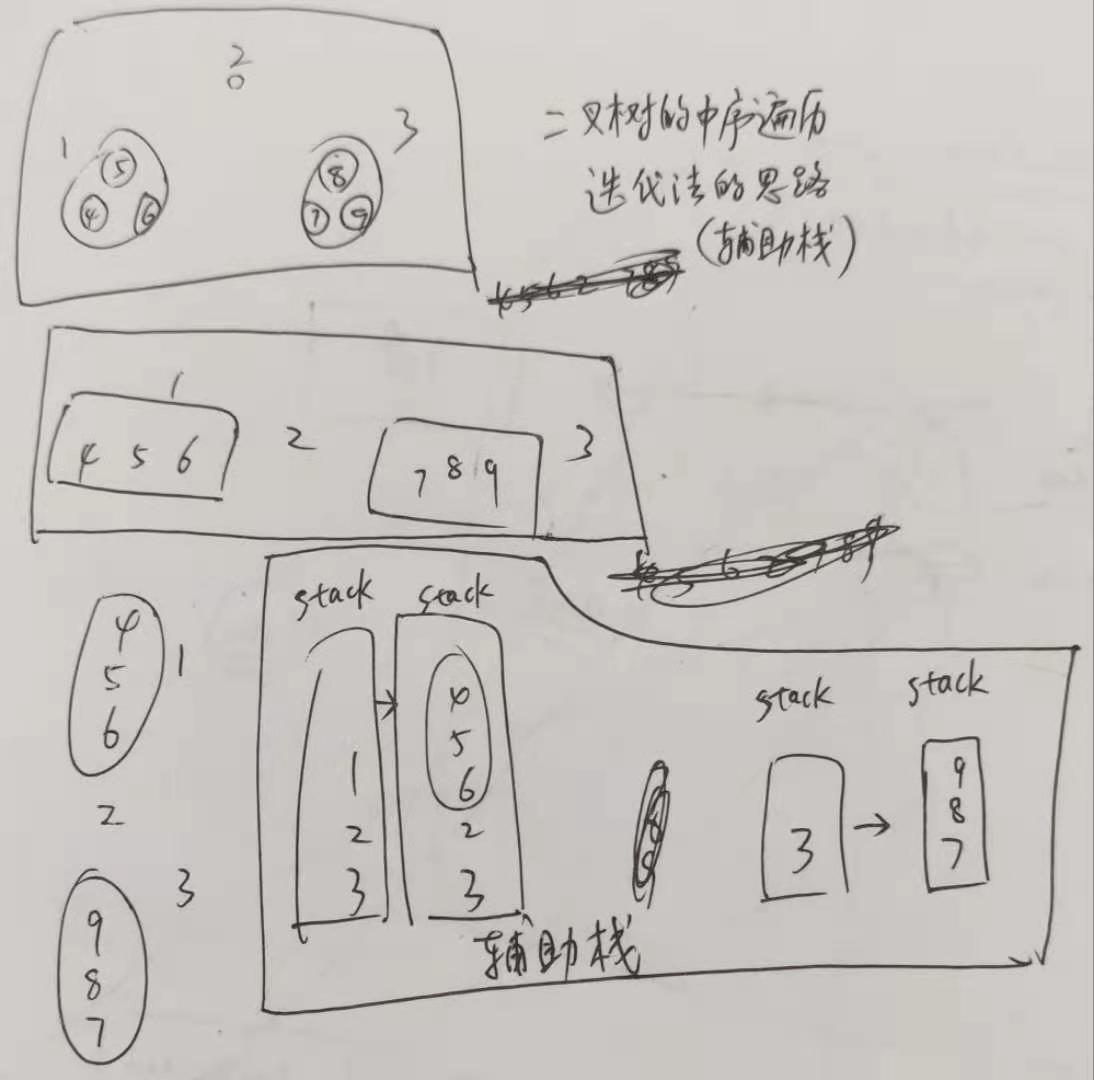 2
1
3
5
8
4
6
7
9
二叉树的中序遍历
迭代法的思路
(辅助栈)
1
4 5 6
2
7 8 9
3
4
5
6
1
2
3
9
8
7
stack
1
2
3
stack
4
5
6
2
3
stack
3
stack
9
8
7
辅助栈